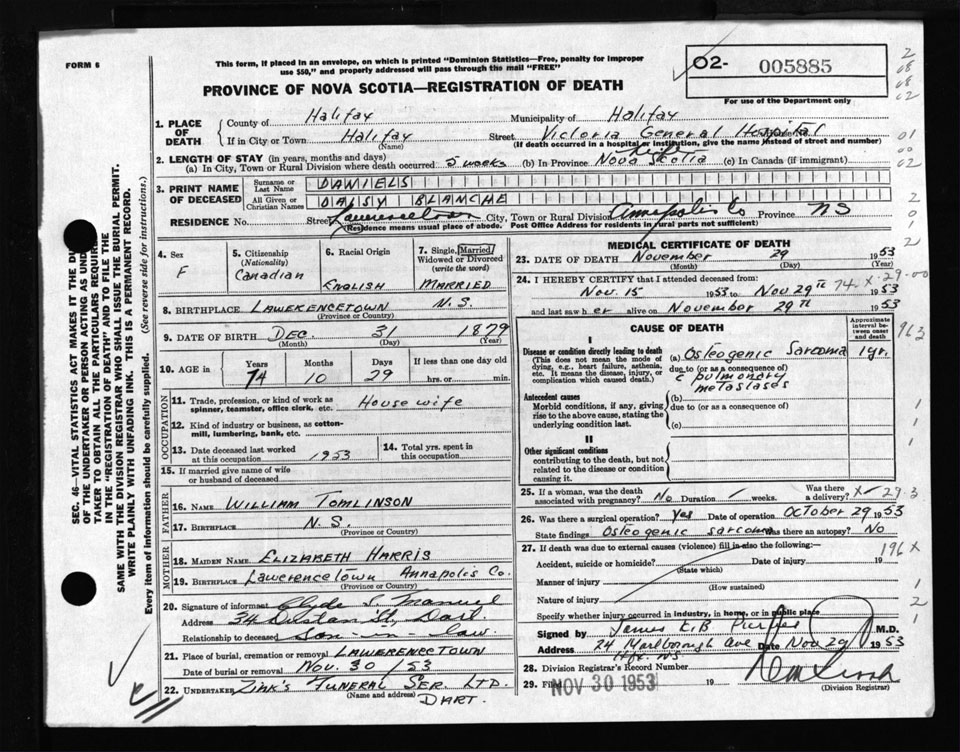 FORM 6
This form, if placed in an envelope, on which is printed "Dominion Statistics—Free, penalty for improper
use $50," and properly addressed will pass through the mail "FREE"
O2- 005885
For use of the Department only
PROVINCE OF NOVA SCOTIA—REGISTRATION OF DEATH
1. PLACE OF DEATH
County of Halifax Municipality of Halifax
If in City or Town Halifax Street Victoria General Hospital
(Name) (If death occurred in a hospital or institution, give the name instead of street and number)
2. LENGTH OF STAY (in years, months and days)
(a) In City, Town or Rural Division where death occurred 5 weeks (b) In Province Life Nova Scotia (c) In Canada (if immigrant)
3. PRINT NAME OF DECEASED
Surname or Last Name DANIELS
All Given or Christian Names DAISY BLANCHE
RESIDENCE No. Street Lawrencetown City, Town or Rural Division Annapolis Co Province NS
(Residence means usual place of abode. Post Office Address for residents in rural parts not sufficient)
4. Sex F
5. Citizenship (Nationality) Canadian
6. Racial Origin English
7. Single, Married Widowed or Divorced (write the word) MARRIED
8. BIRTHPLACE LAWERENCETOWN N.S.
(Province or Country)
9. DATE OF BIRTH DEC. 31 1879
(Month) (Day) (Year)
10. AGE in Years 74 Months 10 Days 29 If less than one day old hrs. or min.
OCCUPATION
11. Trade, profession, or kind of work as spinner, teamster, office clerk, etc. House wife
12. Kind of industry or business, as cotton-mill, lumbering, bank, etc.
13. Date deceased last worked at this occupation 1953
14. Total yrs. spent in this occupation
15. If married give name of wife or husband of deceased
FATHER
16. Name WILLIAM TOMLINSON
17. Birthplace N.S.
(Province or Country)
MOTHER
18. Maiden Name ELIZABETH HARRIS
19. Birthplace Lawerencetown Annapolis Co.
(Province or Country)
20. Signature of informant Clyde L. Manuel
Address 34 St, Dart.
Relationship to deceased Son-in-law.
21. Place of burial, cremation or removal LAWERENCETOWN
Date of burial or removal Nov. 30/53
22. UNDERTAKER ZINK'S FUNERAL SER. LTD.
(Name and address) DART.
MEDICAL CERTIFICATE OF DEATH
23. DATE OF DEATH November 29 1953
(Month) (Day) (Year)
24. I HEREBY CERTIFY that I attended deceased from:
Nov. 15 1953 to Nov 29th 1953
and last saw her alive on November 29th 1953
CAUSE OF DEATH
Approximate interval between onset and death
I
Disease or condition directly leading to death
(This does not mean the mode of dying, e.g., heart failure, asthenia, etc. It means the disease, injury, or complication which caused death.)
(a) Osteogenic Sarcoma 1 yr.
due to (or as a consequence of)
c pulmonary
metastases
Antecedent causes
Morbid conditions, if any, giving rise to the above cause, stating the underlying condition last.
(b)
due to (or as a consequence of)
(c)
II
Other significant conditions
contributing to the death, but not related to the disease or condition causing it.
25. If a woman, was the death associated with pregnancy? No Duration weeks. Was there a delivery? X
26. Was there a surgical operation? Yes Date of operation October 29 1953
State findings Osteogenic sarcoma Was there an autopsy? No
27. If death was due to external causes (violence) fill in also the following:—
Accident, suicide or homicide? Date of injury 19
(State which)
Manner of injury
(How sustained)
Nature of injury
Specify whether injury occurred in industry, in home, or in public place
Signed by James E.B. M.D.
Address 24 Marlborough Ave Date Nov 29 1953
Hfx. NS.
28. Division Registrar's Record Number
29. Filed NOV 30 1953 19
(Division Registrar)
SEC. 46—VITAL STATISTICS ACT MAKES IT THE DUTY
OF THE UNDERTAKER OR PERSON ACTING AS UNDER-
TAKER TO OBTAIN ALL THE PARTICULARS REQUIRED
IN THE "REGISTRATION OF DEATH" AND TO FILE THE
SAME WITH THE DIVISION REGISTRAR WHO SHALL ISSUE THE BURIAL PERMIT.
WRITE PLAINLY WITH UNFADING INK. THIS IS A PERMANENT RECORD.
Every item of information should be carefully supplied. (See reverse side for instructions.)